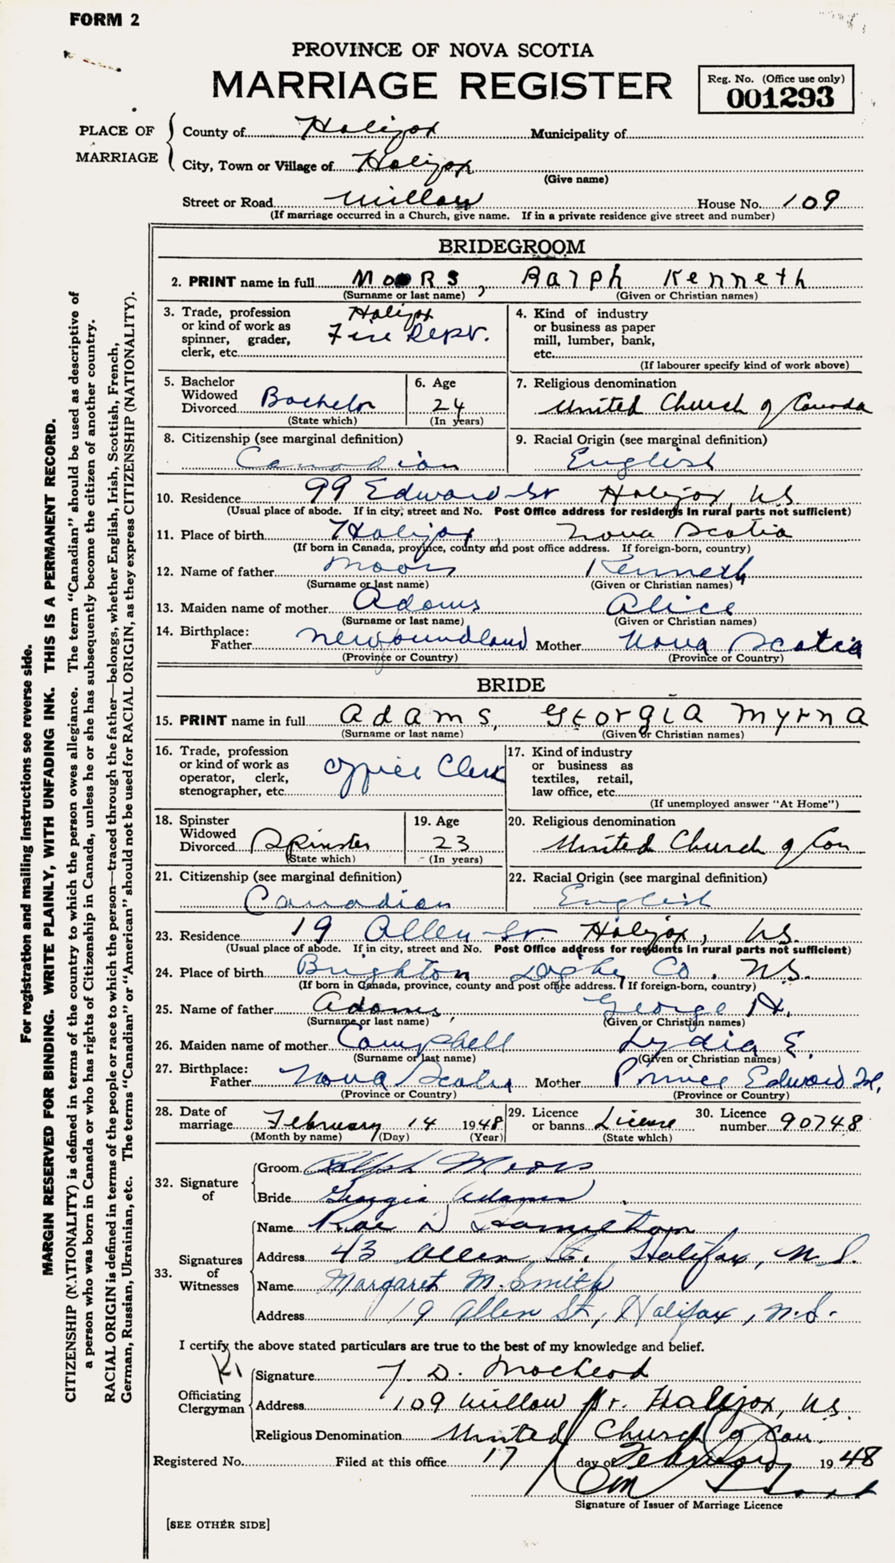 FORM 2
PROVINCE OF NOVA SCOTIA
MARRIAGE REGISTER
Reg. No. (Office use only)
001293
PLACE OF MARRIAGE
County of Halifax Municipality of
City, Town or Village of Halifax
(Give name)
Street or Road Willow House No. 109
(If marriage occurred in a Church, give name. If in a private residence give street and number)
BRIDEGROOM
2. PRINT name in full MOORS, Ralph Kenneth
(Surname or last name) (Given or Christian names)
3. Trade, profession or kind of work as spinner, grader, clerk, etc. Halifax Fire Dept.
4. Kind of industry or business as paper mill, lumber, bank, etc.
(If labourer specify kind of work above)
5. Bachelor Widowed Divorced Bachelor
(State which)
6. Age 24
(In years)
7. Religious denomination United Church of Canada
8. Citizenship (see marginal definition) Canadian
9. Racial Origin (see marginal definition) English
10. Residence 99 Edward St Halifax, N.S.
(Usual place of abode. If in city, street and No. Post Office address for residents in rural parts not sufficient)
11. Place of birth Halifax Nova Scotia
(If born in Canada, province, county and post office address. If foreign-born, country)
12. Name of father Moors Kenneth
(Surname or last name) (Given or Christian names)
13. Maiden name of mother Adams Alice
(Surname or last name) (Given or Christian names)
14. Birthplace: Father Newfoundland Mother Nova Scotia
(Province or Country) (Province or Country)
BRIDE
15. PRINT name in full Adams, Georgia Myrna
(Surname or last name) (Given or Christian names)
16. Trade, profession or kind of work as operator, clerk, stenographer, etc. Office Clerk
17. Kind of industry or business as textiles, retail, law office, etc.
(If unemployed answer "At Home")
18. Spinster Widowed Divorced Spinster
(State which)
19. Age 23
(In years)
20. Religious denomination United Church of Can
21. Citizenship (see marginal definition) Canadian
22. Racial Origin (see marginal definition) English
23. Residence 19 Allen St Halifax, N.S.
(Usual place of abode. If in city, street and No. Post Office address for residents in rural parts not sufficient)
24. Place of birth Brighton Digby Co. N.S.
(If born in Canada, province, county and post office address. If foreign-born, country)
25. Name of father Adams, George H.
(Surname or last name) (Given or Christian names)
26. Maiden name of mother Campbell Lydia E.
(Surname or last name) (Given or Christian names)
27. Birthplace: Father Nova Scotia Mother Prince Edward Isl.
(Province or Country) (Province or Country)
28. Date of marriage February 14 1948
(Month by name) (Day) (Year)
29. Licence or banns License
(State which)
30. Licence number 90748
32. Signature of
Groom Ralph Moors
Bride Georgia Adams
33. Signatures of Witnesses
Name Rae D Hamilton
Address 43 Allen St. Halifax, N.S.
Name Margaret M. Smith
Address 19 Allen St, Halifax, N.S.
I certify the above stated particulars are true to the best of my knowledge and belief.
Officiating Clergyman
Signature D. MacLeod
Address 109 Willow St. Halifax, N.S.
Religious Denomination United Church of Can.
Registered No. Filed at this office 17 day of February 1948
Signature of Issuer of Marriage Licence
[SEE OTHER SIDE]
For registration and mailing instructions see reverse side.
MARGIN RESERVED FOR BINDING. WRITE PLAINLY, WITH UNFADING INK. THIS IS A PERMANENT RECORD.
CITIZENSHIP (NATIONALITY) is defined in terms of the country to which the person owes allegiance. The term "Canadian" should be used as descriptive of
a person who was born in Canada or who has rights of Citizenship in Canada, unless he or she has subsequently become the citizen of another country.
RACIAL ORIGIN is defined in terms of the people or race to which the person—traced through the father—belongs, whether English, Irish, Scottish, French,
German, Russian, Ukrainian, etc. The terms "Canadian" or "American" should not be used for RACIAL ORIGIN, as they express CITIZENSHIP (NATIONALITY).